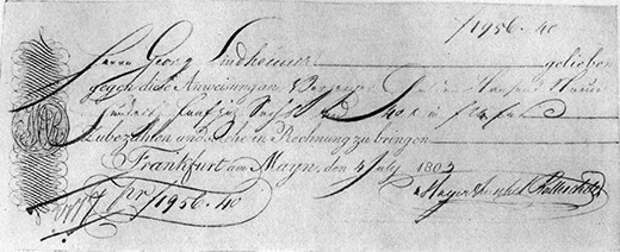 f 1956 - 40
Herrn Georg Lindheimer gelieben
gegen diese Anweisung an Ein Tausend Neun
Hundert Fünfzig Sechs und 40 x in
zu bezahlen und Solche in Rechnung zu bringen
Frankfurt am Mayn, den 4 July 1803
pr f 1956 - 40
Mayer Amschel Rothschild